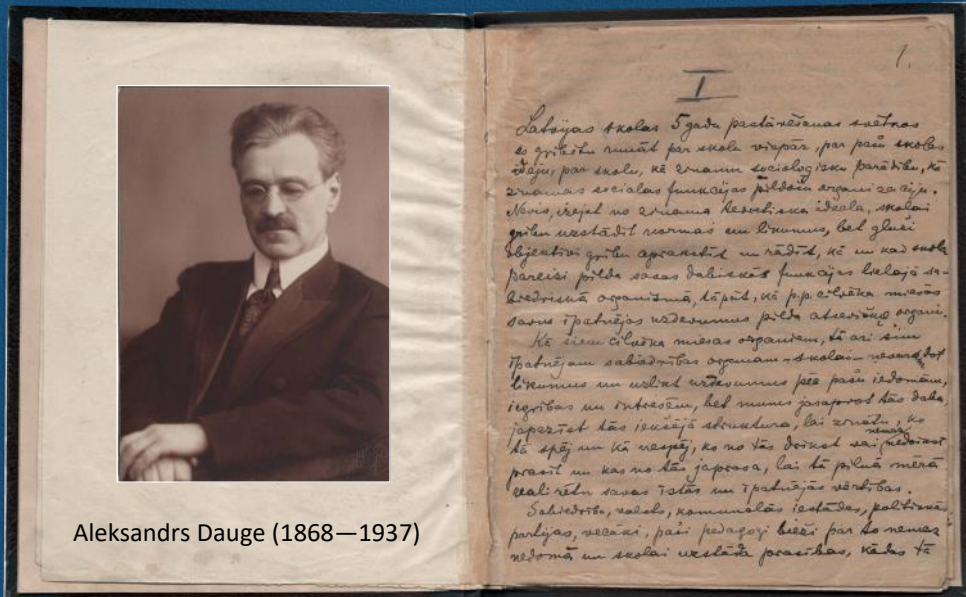 Aleksandrs Dauge (1868—1937)
1.
I
Latvijas skolas 5 gadu pastāvēšanas svētkos
es gribētu runāt par skolu vispār, par pašu skolas
ideju, par skolu, kā zinamu socioloģisku parādību, kā
zinamas socialas funkcijas pildošu organizaciju.
Nevis, izejot no zinama teoretiska ideala, skolai
gribu uzstādīt normas un likumus, bet gluži
objektivi gribu aprakstīt un rādīt, kā un kad skola
pareizi pilda savas dabiskās funkcijas lielajā sa-
biedriskā organismā, tāpat, kā p.p. cilvēka miesās
savus īpatnējos uzdevumus pilda atsevišķo organi.
Kā šiem cilvēka miesas organiem, tā arī šim
īpatnējam sabiedrības organam - skolai - nevaram dot
likumus un uzlikt uzdevumus pēc pašu iedomām,
iegribas un interesēm, bet mums jasaprot tās daba,
japazīst tās iekšējā struktura, lai zinatu, ko
tā spēj un kā nespēj, ko no tās drīkst vai nemaz nedrīkst
prasīt un kas no tās japrasa, lai tā pilnā mērā
realizētu savas īstās un īpatnējās vērtības.
Sabiedrība, valsts, komunalās iestādes, politiskās
partijas, vecāki, paši pedagogi bieži par to nemaz
nedomā un skolai uzstāda prasības, kādas tā